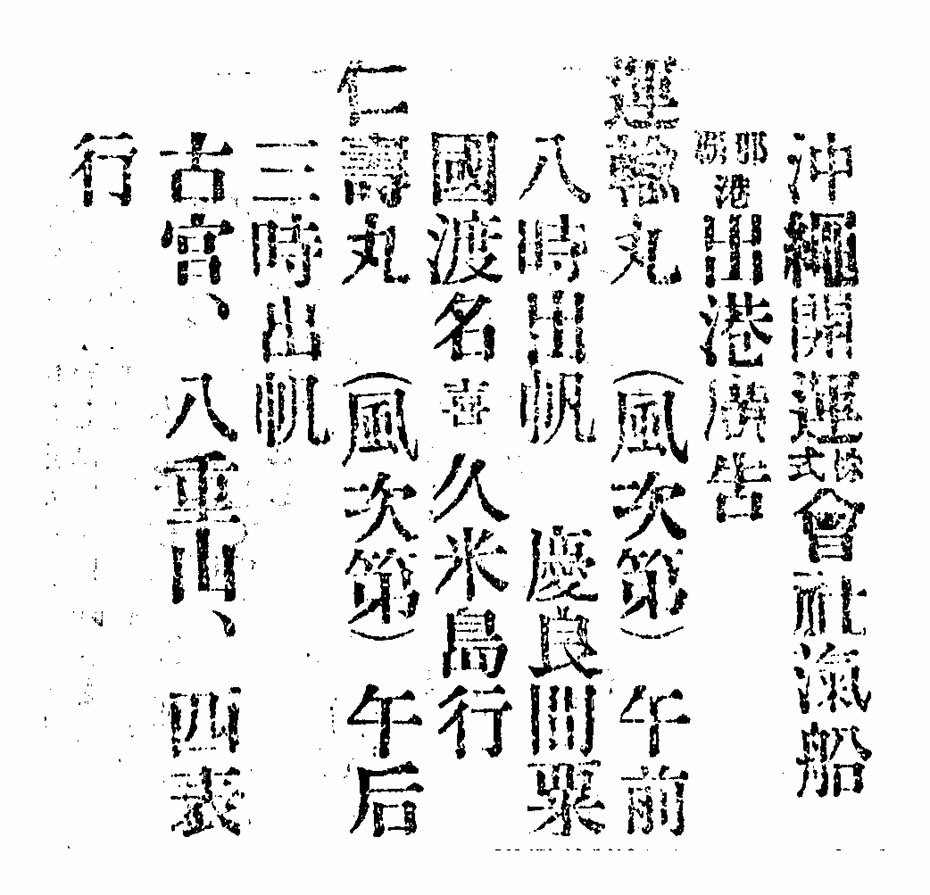 沖繩開運株式會社滊船
那覇港出港廣告
運輸丸(風次第)午前
八時出帆 慶良間粟
國渡名喜 久米島行
仁壽丸(風次第)午后
三時出帆
古宮、八重山、四表
行